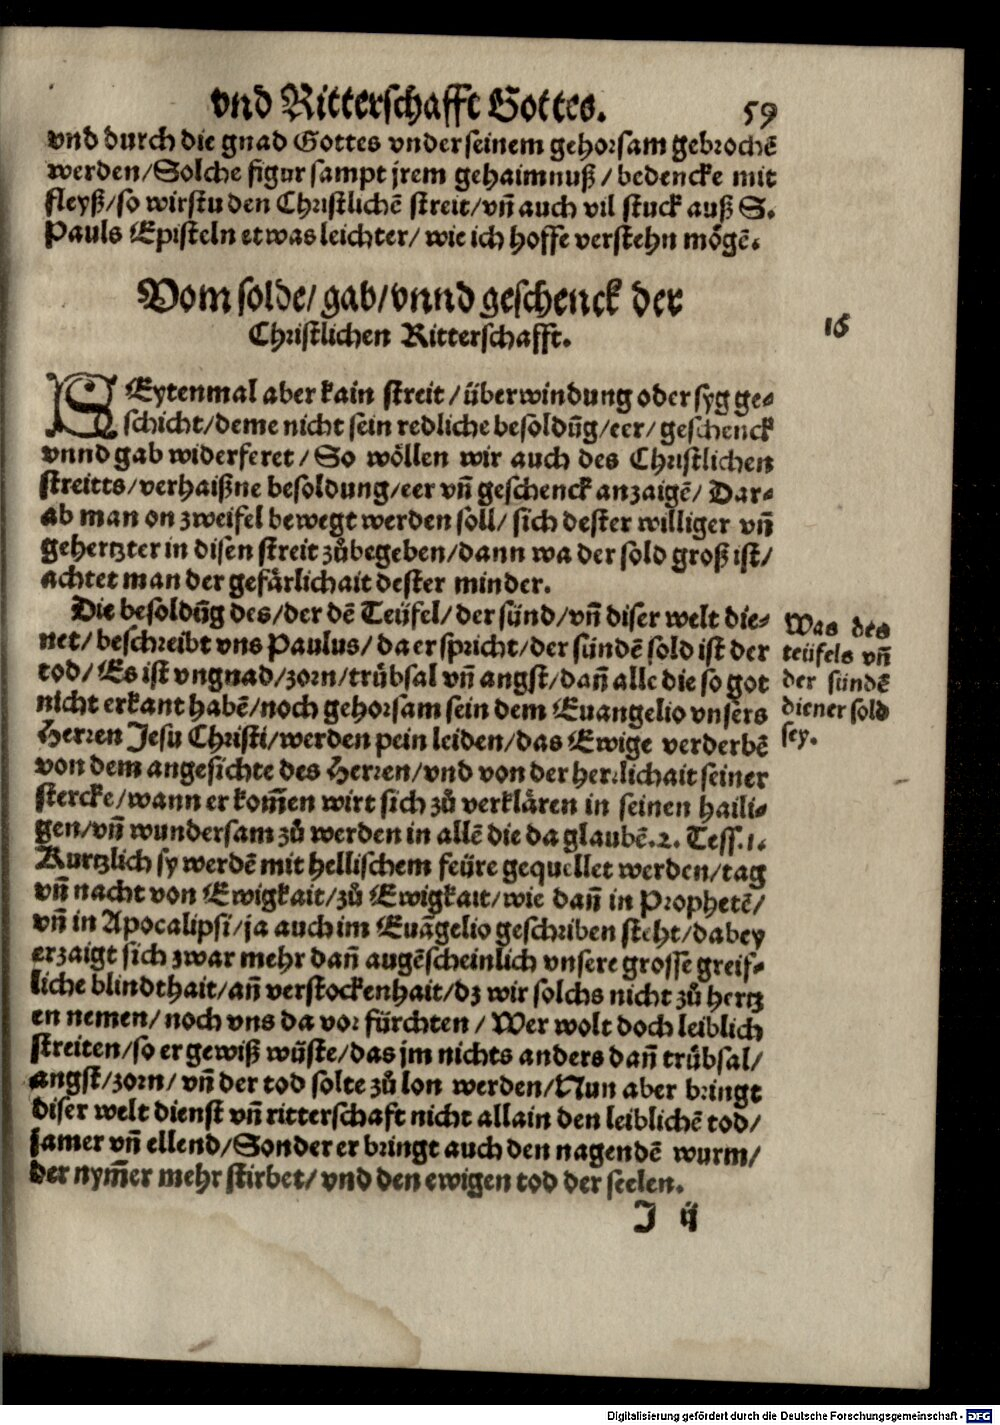 vnd Ritterschafft Gottes. 59
vnd durch die gnad Gottes vnder seinem gehorsam gebrochē
werden/Solche figur sampt jrem gehaimnuß / bedencke mit
fleyß/so wirstu den Christlichē streit/vñ auch vil stuck auß S.
Pauls Episteln etwas leichter/ wie ich hoffe verstehn mögē.
Vom solde/ gab/vnnd geschenck der
Christlichen Ritterschafft.
16
SEytenmal aber kain streit /überwindung oder syg ge⸗
schicht/deme nicht sein redliche besoldūg/eer/ geschenck
vnnd gab widerferet / So wöllen wir auch des Christlichen
streitts/verhaißne besoldung/eer vñ geschenck anzaigē/ Dar⸗
ab man on zweifel bewegt werden soll/ sich dester williger vñ
gehertzter in disen streit zůbegeben/dann wa der sold groß ist/
achtet man der gefärlichait dester minder.
Die besoldūg des/der dē Teüfel/der sünd/vñ diser welt die⸗
net/ beschreibt vns Paulus/da er spricht/der sündē sold ist der
tod/ Es ist vngnad/zorn/trübsal vñ angst/dañ alle die so got
nicht erkant habē/noch gehorsam sein dem Euangelio vnsers
Herren Jesu Christi/werden pein leiden/das Ewige verderbē
von dem angesichte des Herren/vnd von der herrlichait seiner
stercke/wann er kom̄en wirt sich zů verklären in seinen haili⸗
gen/vñ wundersam zů werden in allē die da glaubē.2. Tess.1.
Kurtzlich sy werdē mit hellischem feüre gequellet werden/tag
vñ nacht von Ewigkait/zů Ewigkait/wie dañ in Prophetē/
vñ in Apocalipsi/ja auch im Euāgelio geschriben steht/dabey
erzaigt sich zwar mehr dañ augēscheinlich vnsere grosse greif⸗
liche blindthait/añ verstockenhait/dz wir solchs nicht zů hertz
en nemen/noch vns da vor fürchten / Wer wolt doch leiblich
streiten/so er gewiß wüste/das jm nichts anders dañ trübsal/
angst/zorn/ vñ der tod solte zů lon werden/Nun aber bringt
diser welt dienst vñ ritterschaft nicht allain den leiblichē tod/
jamer vñ ellend/Sonder er bringt auch den nagendē wurm/
der nym̄er mehr stirbet/ vnd den ewigen tod der seelen.
Was des
teüfels vñ
der sündē
diener sold
sey.
J ij
Digitalisierung gefördert durch die Deutsche Forschungsgemeinschaft - DFG